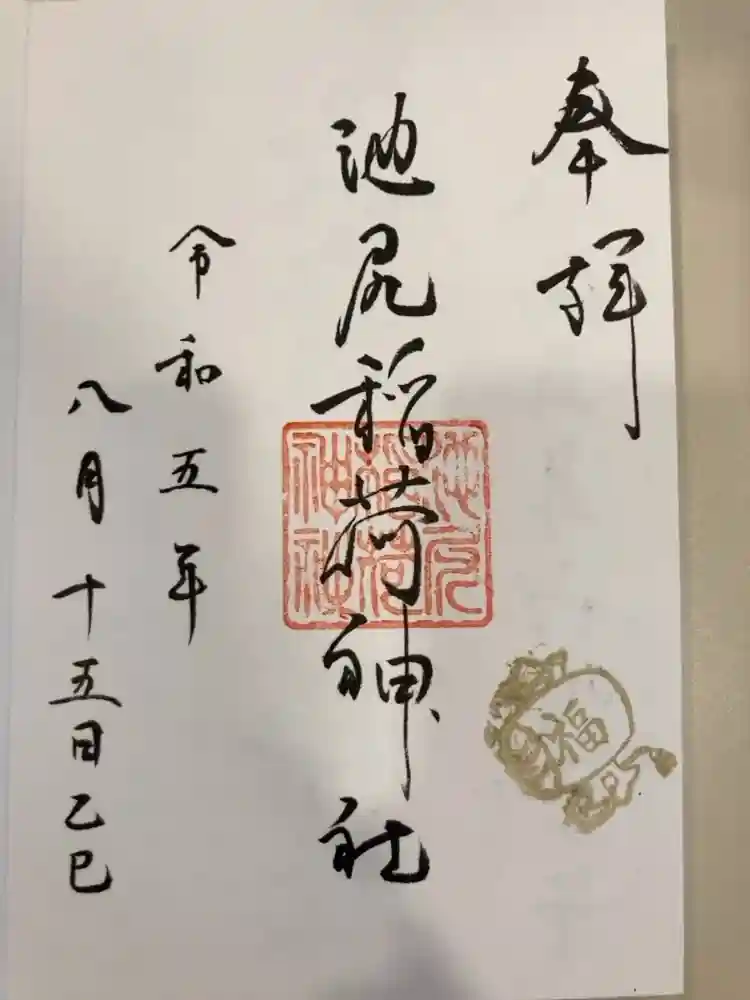 奉拝
池尻稲荷神社
池尻
稲荷
神社
福
令和五年
八月十五日乙巳